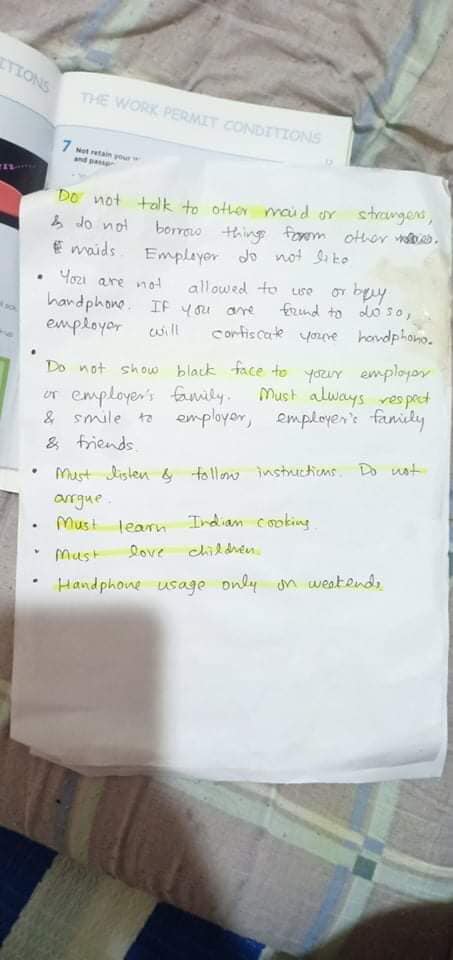 ITIONS
THE WORK PERMIT CONDITIONS
7 Not retain your
and passp
Do not talk to other maid or strangers,
& do not borrow things from other
maids. Employer do not like
• You are not allowed to use or buy
handphone. If you are found to do so,
employer will confiscate youre handphone.
•
Do not show black face to your employer
or employer's family. Must always respect
& smile to employer, employer's family
& friends.
• Must listen & follow instructions. Do not
argue.
• Must learn Indian cooking.
• Must love children.
• Handphone usage only on weekends